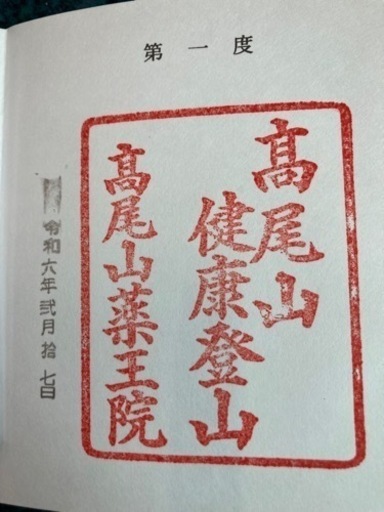 第一度
髙尾山
健康登山
髙尾山薬王院
令和六年弐月拾七日